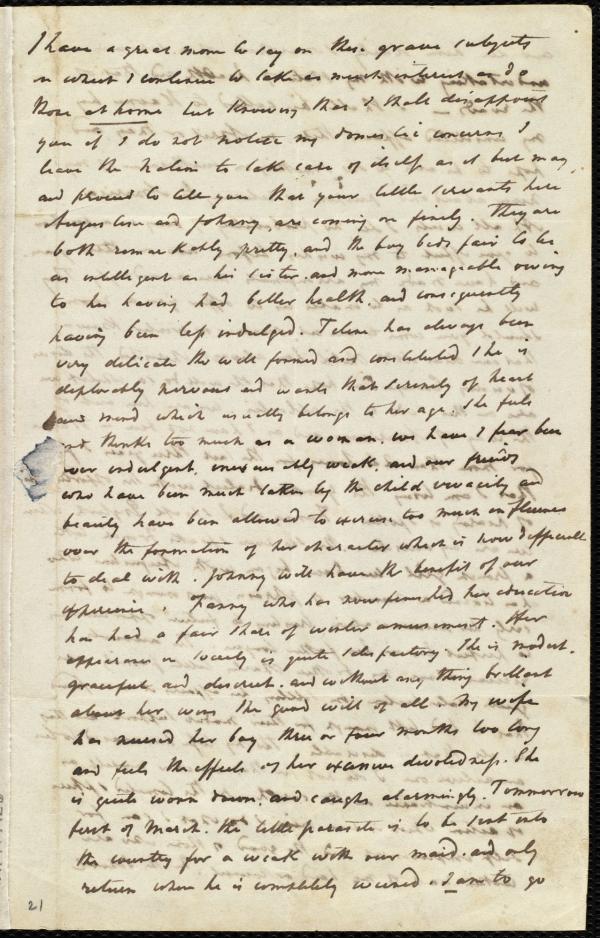 I have a great more to say on these grave subjects
in which I continue to take as much interest as I do
those at home but knowing that I shall disappoint
you if I do not notice my domestic concerns I
leave the nation to take care of itself as it best may,
and proceed to tell you that your little servants here
Augustine and Johnny, are coming on finely. They are
both remarkably pretty, and the boy bids fair to be
as intelligent as his sister, and more manageable owing
to his having had better health, and consequently
having been less indulged. Tetine has always been
very delicate tho well formed and constituted she is
deplorably nervous and wants that serenity of heart
and mind which usually belongs to her age. She feels
and thinks too much as a woman. we have I fear been
over indulgent, inexcusably weak, and our friends
who have been much taken by the child vivacity and
beauty have been allowed to exercise too much influence
over the formation of her character which is now difficult
to deal with. Johnny will have the benefit of our
experience. Fanny who has now finished her education
has had a fair share of winter amusement. Her
appearance in society is quite satisfactory. She is modest,
graceful and discreet. and without any thing brilliant
about her wins the good will of all. My wife
has nursed her boy three or four months too long
and feels the effects of her excessive devotedness. She
is quite worn down, and coughs alarmingly. Tommorrow
first of March. the little parasite is to be sent into
the country for a week with our maid. and only
return when he is completely weaned. I am to go
21